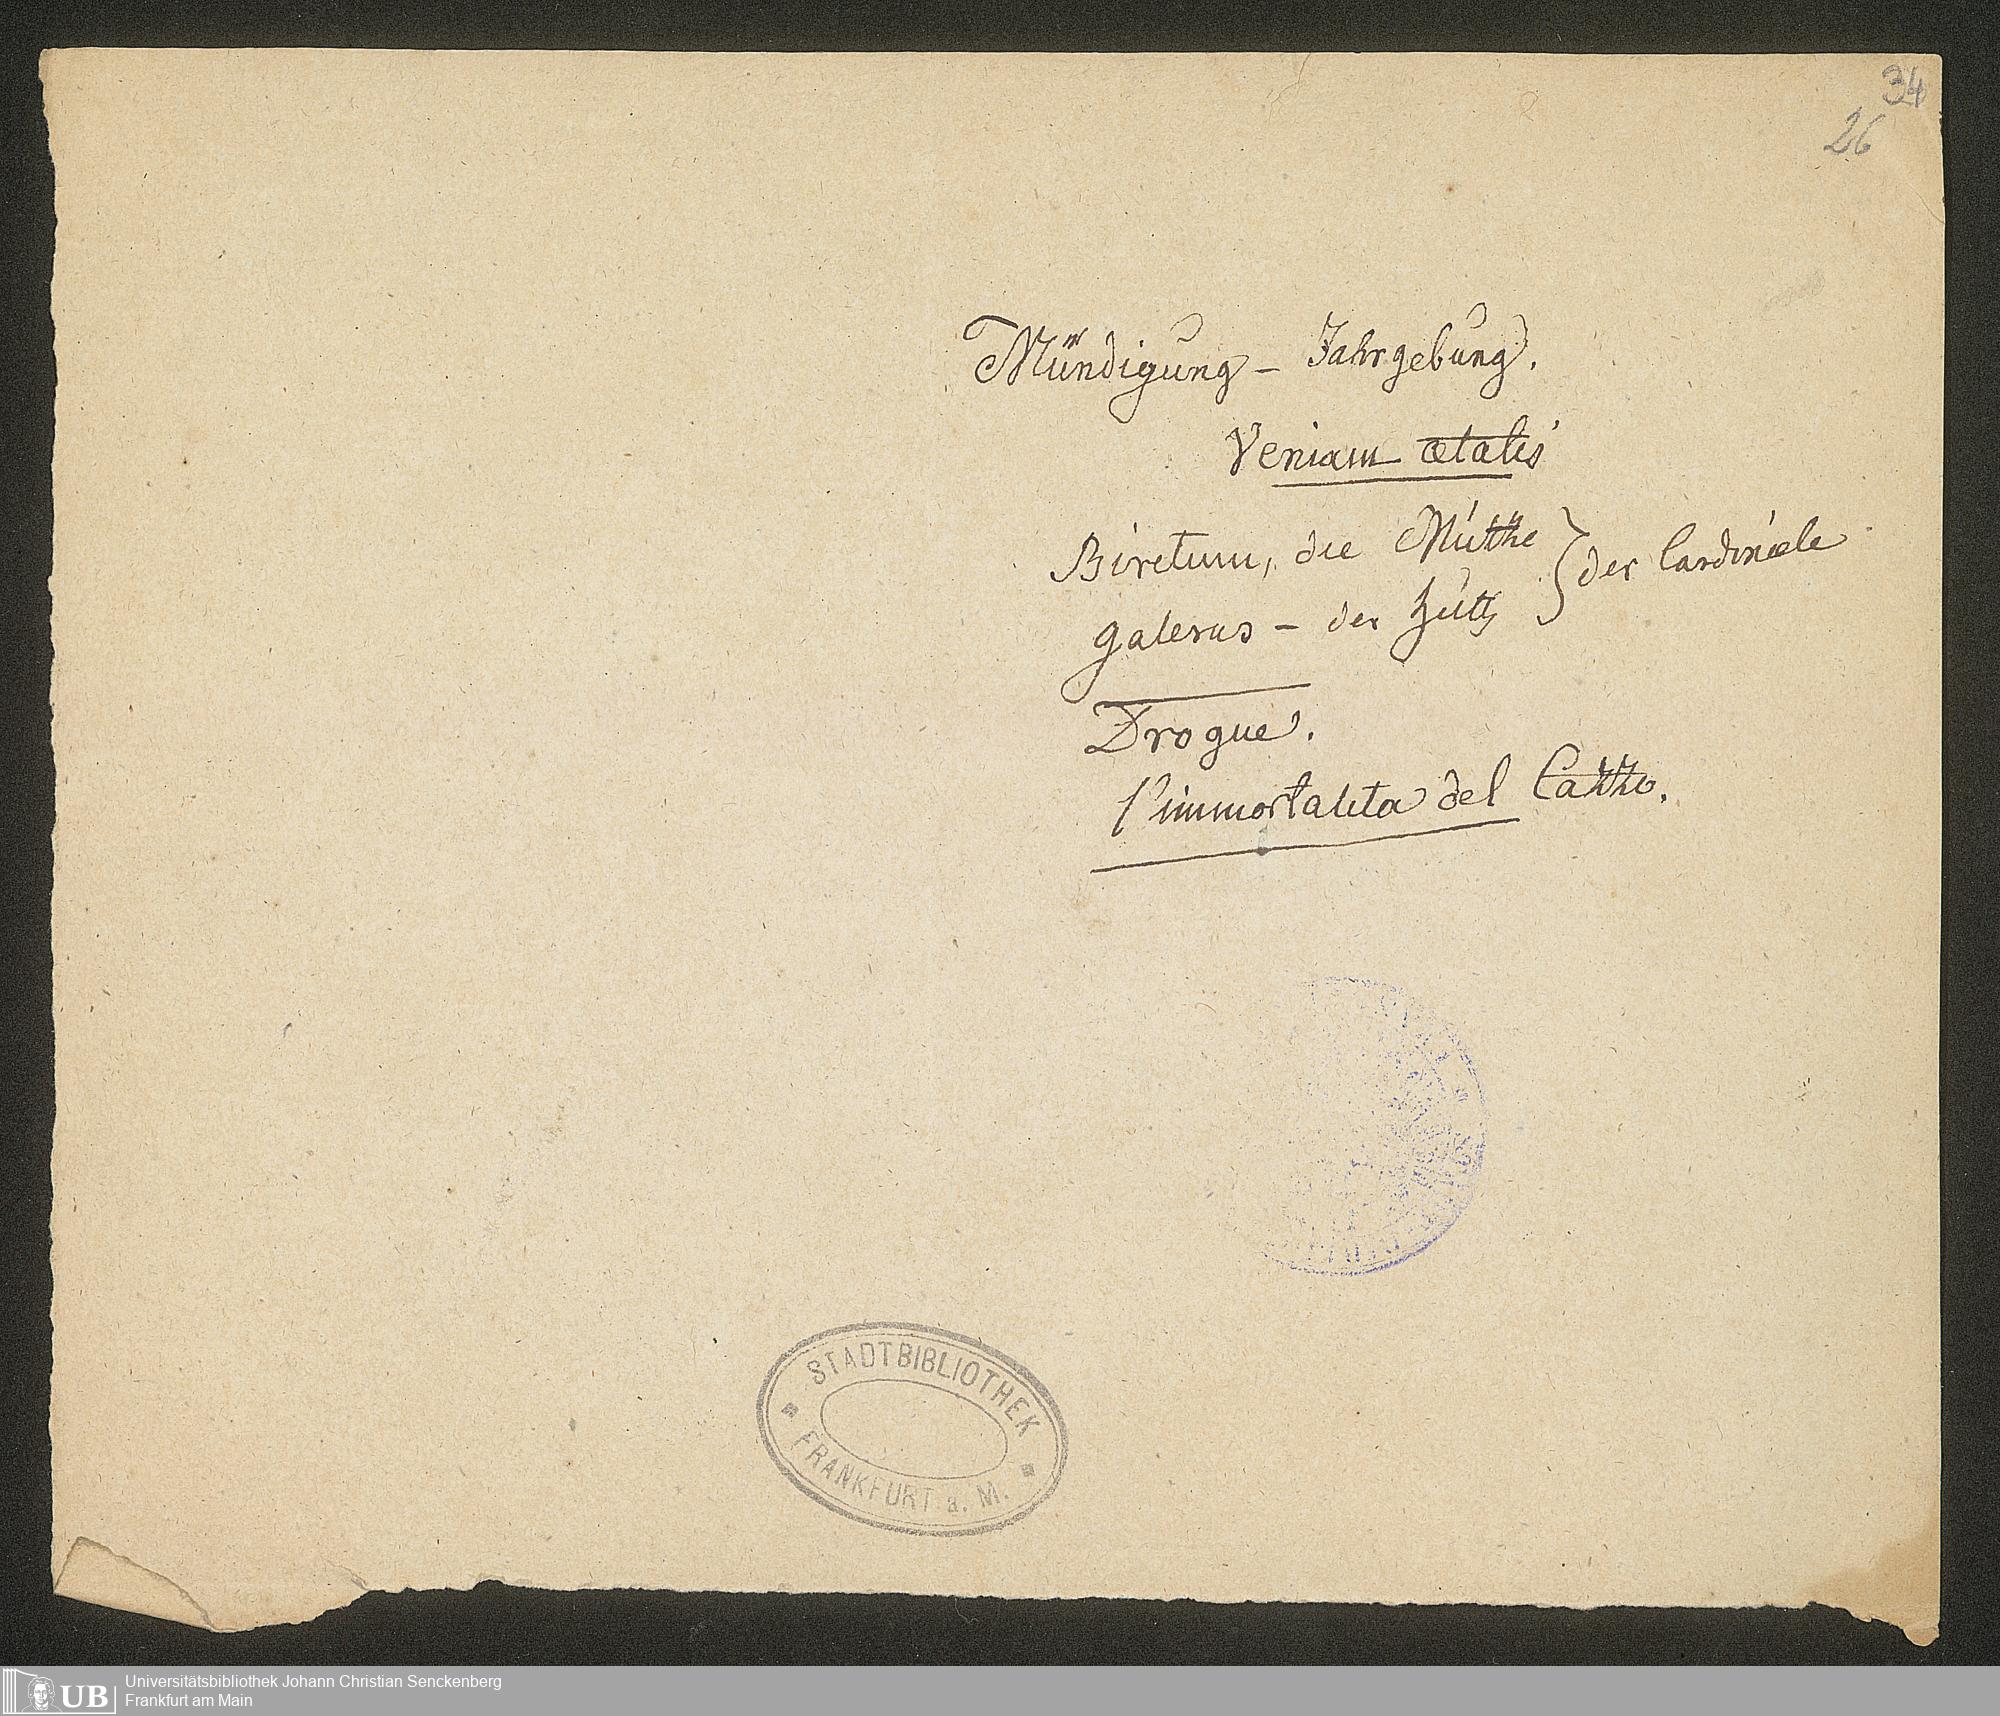 34
26
Mündigung – Jahrgebung.
Veniam ætatis
Biretum, die Mütze
galerus – der Hutt
} der Cardinæle
Drogue.
l'immortalita del Cazzo.
STADTBIBLIOTHEK
FRANKFURT a. M.
UB
Universitätsbibliothek Johann Christian Senckenberg
Frankfurt am Main